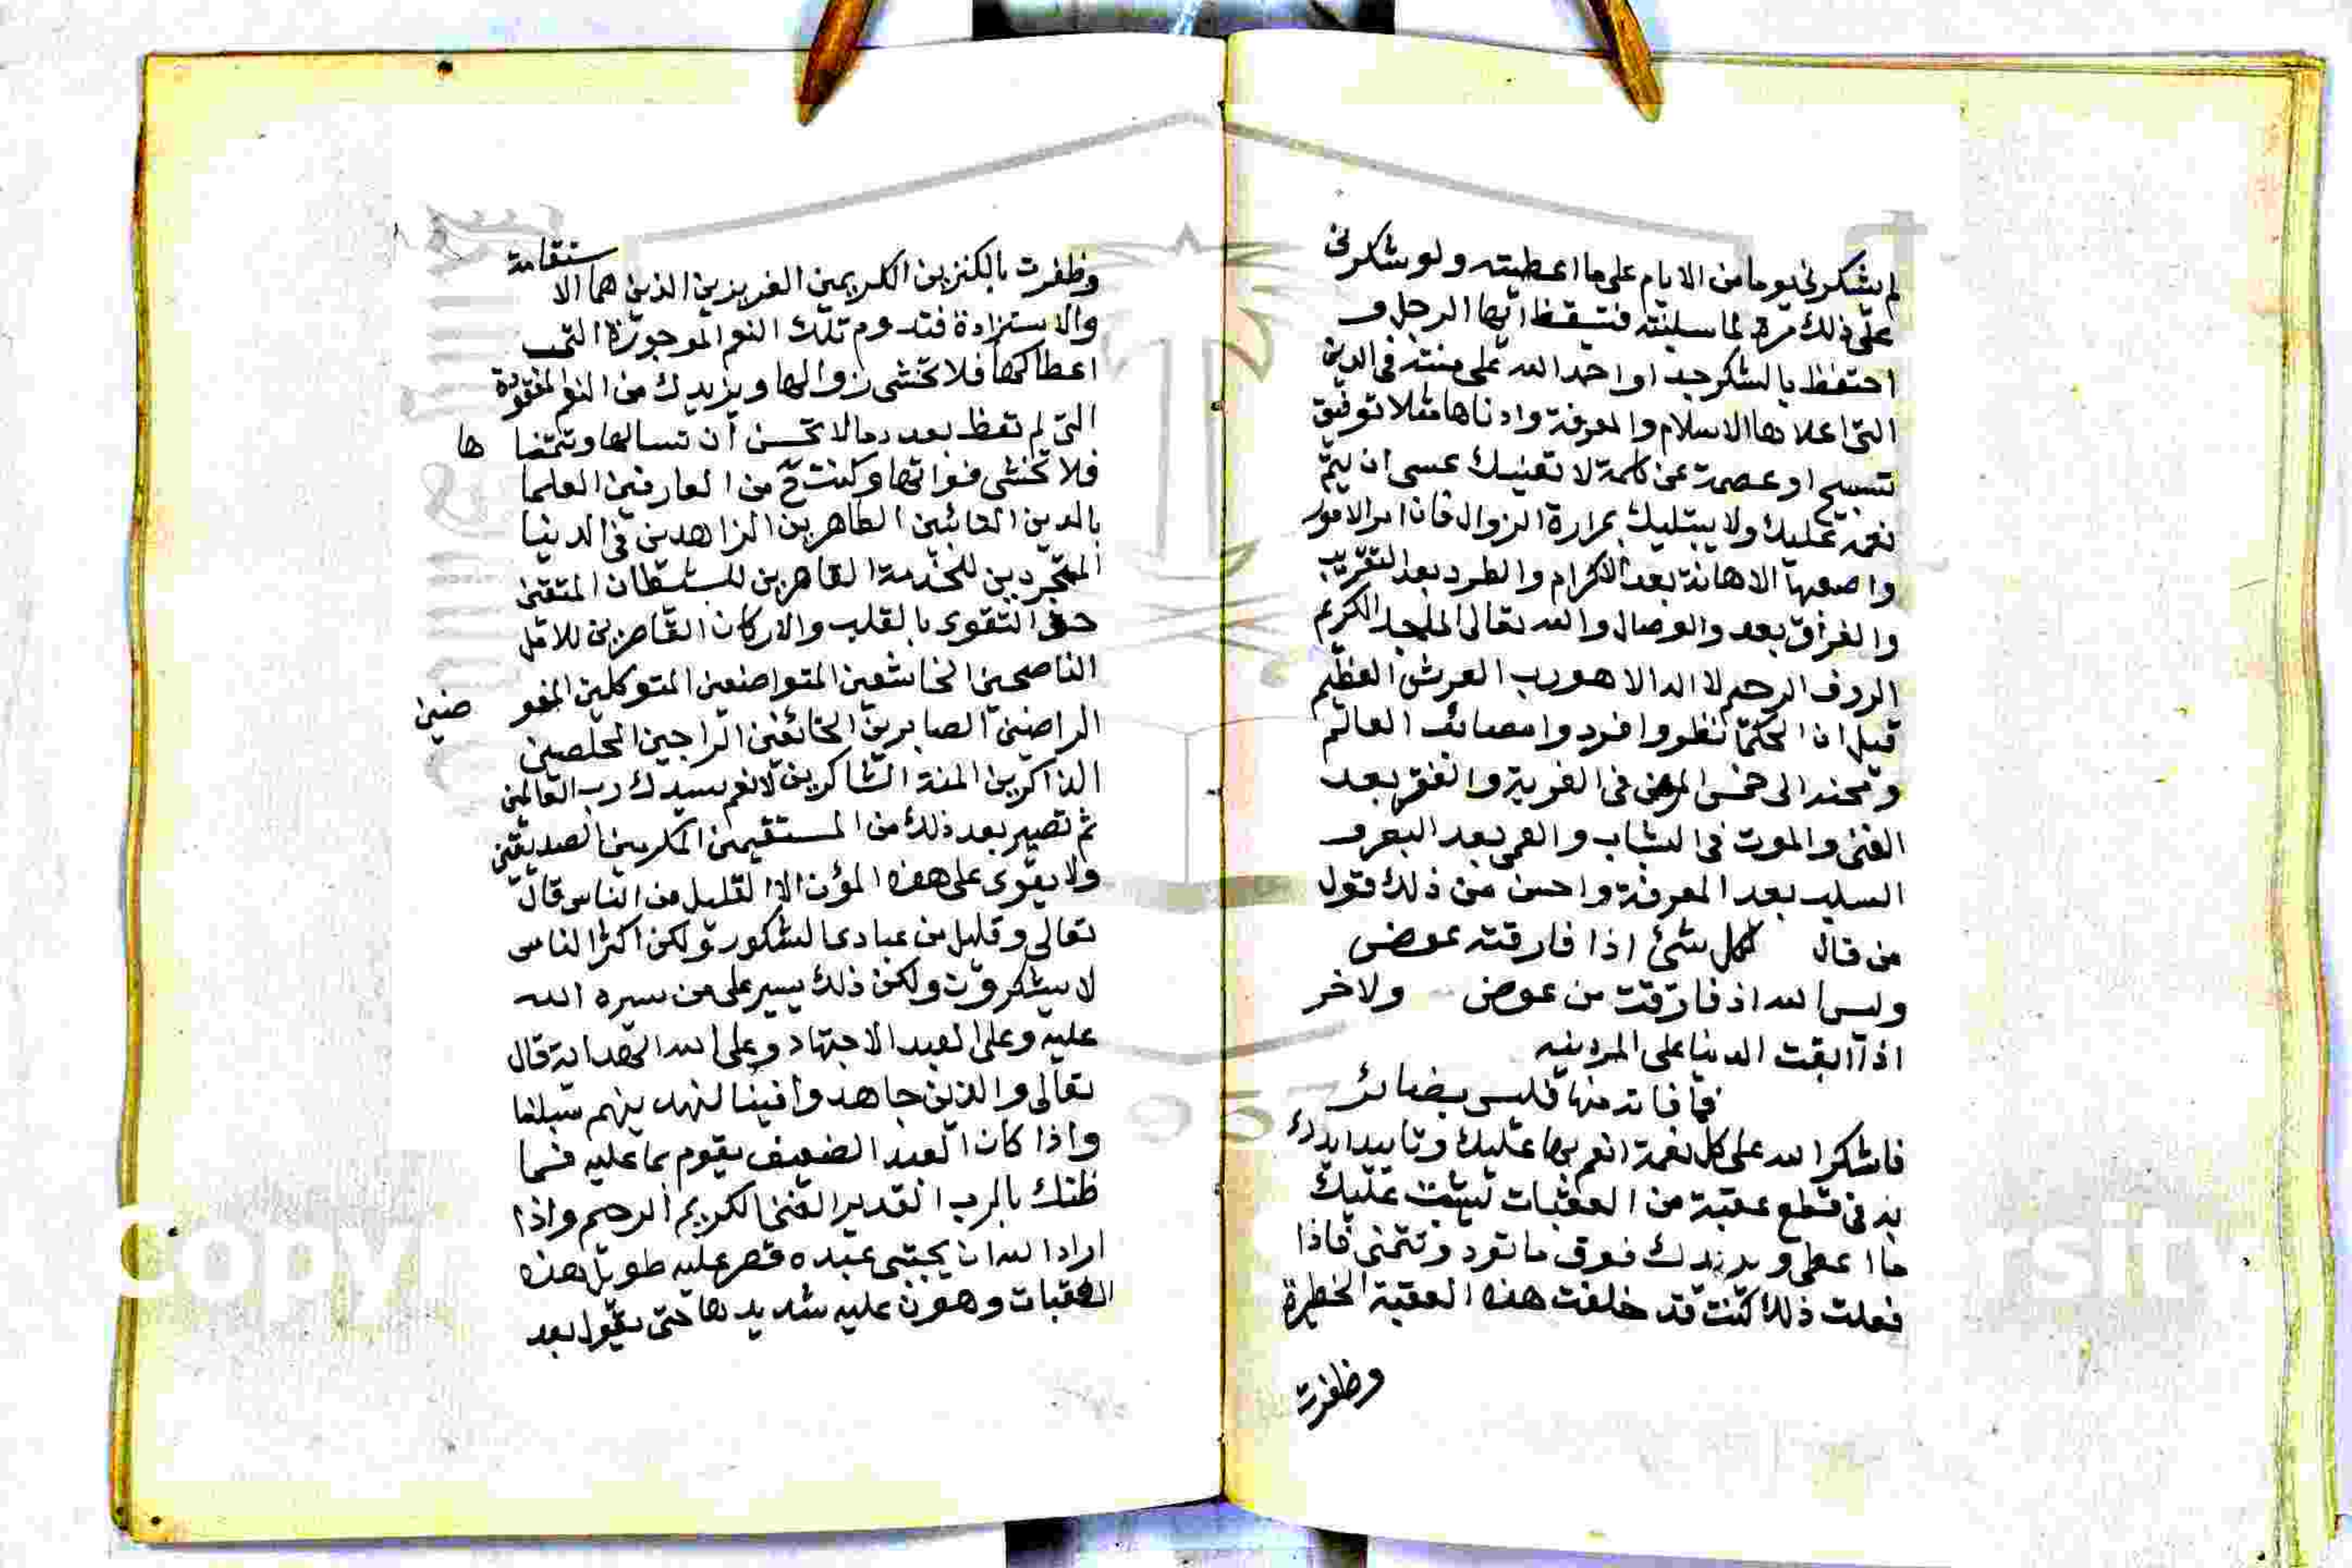 لم يشكرني يوما من الايام على ما اعطيته ولو شكرني
على ذلك مرة لما سلبته فتيقظ ايها الرجل و
احتفظ بالشكر جدا واحمد الله على مننه في الدين
التي اعلاها الاسلام والمعرفة وادناها مثلا توفيق
تسبيح او عصمة عن كلمة لا تعنيك عسى ان يتم
نعمه عليك ولا يبتليك بمرارة الزوال فان امر الامور
واصعبها الاهانة بعد الاكرام والطرد بعد التقريب
والفراق بعد والوصال والله تعالى الماجد الكريم
الروف الرحيم لا اله الا هو رب العرش العظيم
قيل ان الحكما نظروا فردوا مصائب العالم
ومحنه الى خمس المرض في الغربة والفقر بعد
الغنى والموت في الشباب والعمى بعد البصر و
السلب بعد المعرفة واحسن من ذلك قول
من قال لكل شئ اذا فارقته عوض
وليس لله اذ فارقت من عوض ولاخر
اذا ابقت الدنيا على المر دينه
فما فاته منها فليس بضائر
فاشكر الله على كل نعمة انعم بها عليك وتاييد ايدك
به في قطع عقبة من العقبات ليثبت عليك
ما اعطى ويزيدك فوق ما تود وتتمنى فاذا
فعلت ذلك كنت قد خلفت هذه العقبة الخطيرة
وظفرت
وظفرت بالكنزين الكريمين العزيزين الذين هما الاستقامة
والاستزادة فتدوم تلك النعم الموجودة التي
اعطاكها فلا تخشى زوالها ويزيدك من النعم المفقودة
التي لم تعط بعد ومالا تحسن أن تسالها وتتمناها
فلا تخشى فواتها وكنت ح من العارفين العلما
بالدين التائبين الطاهرين الزاهدين في الدنيا
المتجردين للخدمة القاهرين للشيطان المتقين
حق التقوى بالقلب والاركان القاصرين للامل
الناصحين الخاشعين المتواضعين المتوكلين المفوضين
الراضين الصابرين الخائفين الراجين المخلصين
الذاكرين المنة الشاكرين لانعم سيدك رب العالمين
ثم تصير بعد ذلك من المستقيمين المكرمين الصديقين
ولا يقوى على هذه المؤن الا القليل من الناس قال
تعالى وقليل من عبادي الشكور ولكن اكثر الناس
لا يشكرون ولكن ذلك يسير على من يسره الله
عليه وعلى العبد الاجتهاد وعلى الله الهداية قال
تعالى والذين جاهدوا فينا لنهدينهم سبلنا
واذا كان العبد الضعيف يقوم بما عليه فما
ظنك بالرب القدير الغني الكريم الرحيم واذا
اراد الله ان يجتبي عبده قصر عليه طويل هذه
العقبات وهون عليه شديدها حتى يقول بعد